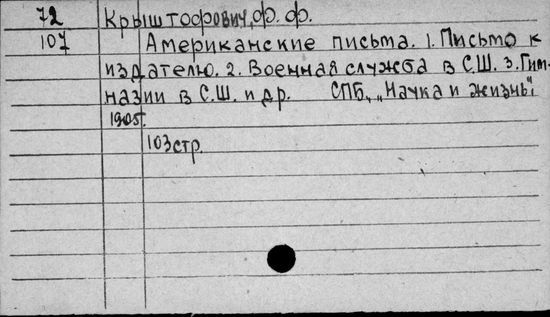 72 Крыштофович, Ф. Ф.
107 Американские письма. 1. Письмо к
издателю. 2. Военная служба в С.Ш. 3. Гим-
назии в С.Ш. и др. СПБ, „Наука и жизнь",
1905г.
103 стр.